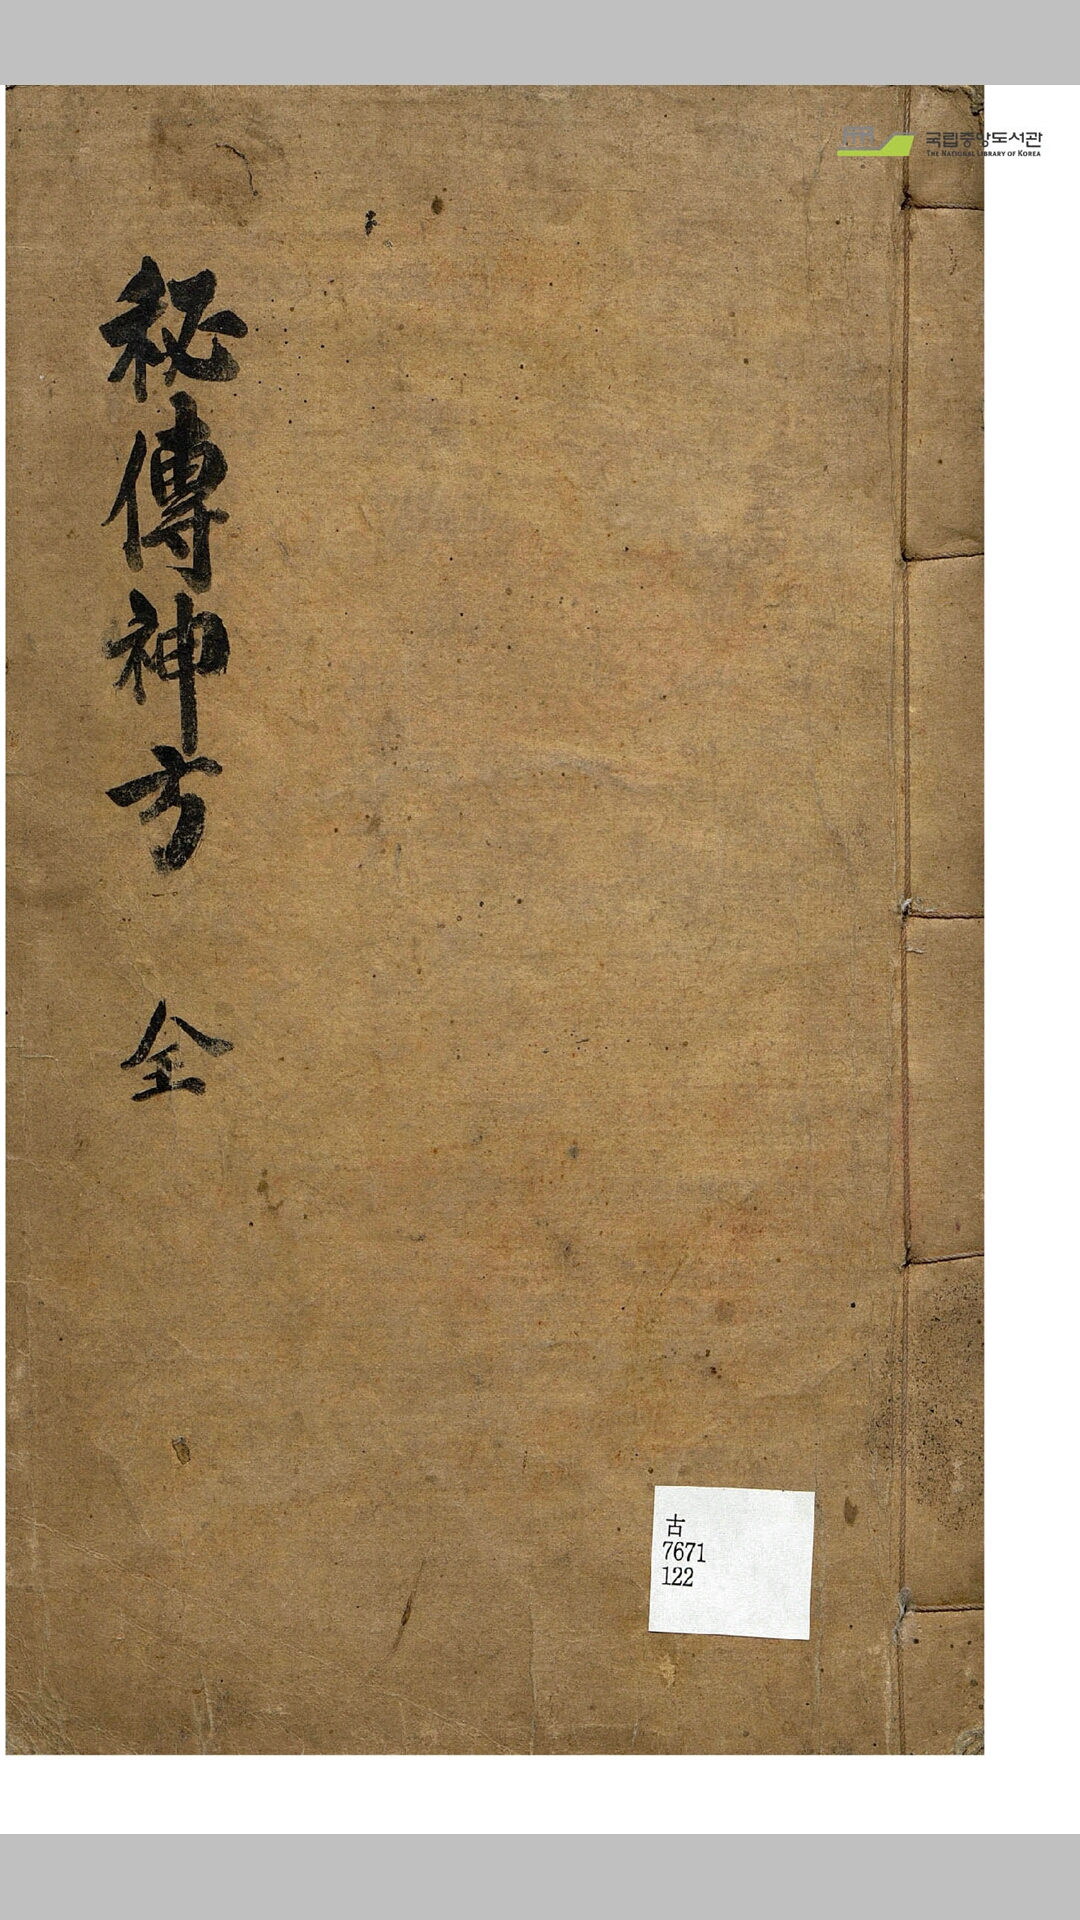 국립중앙도서관
THE NATIONAL LIBRARY OF KOREA
秘傳神方 全
古
7671
122